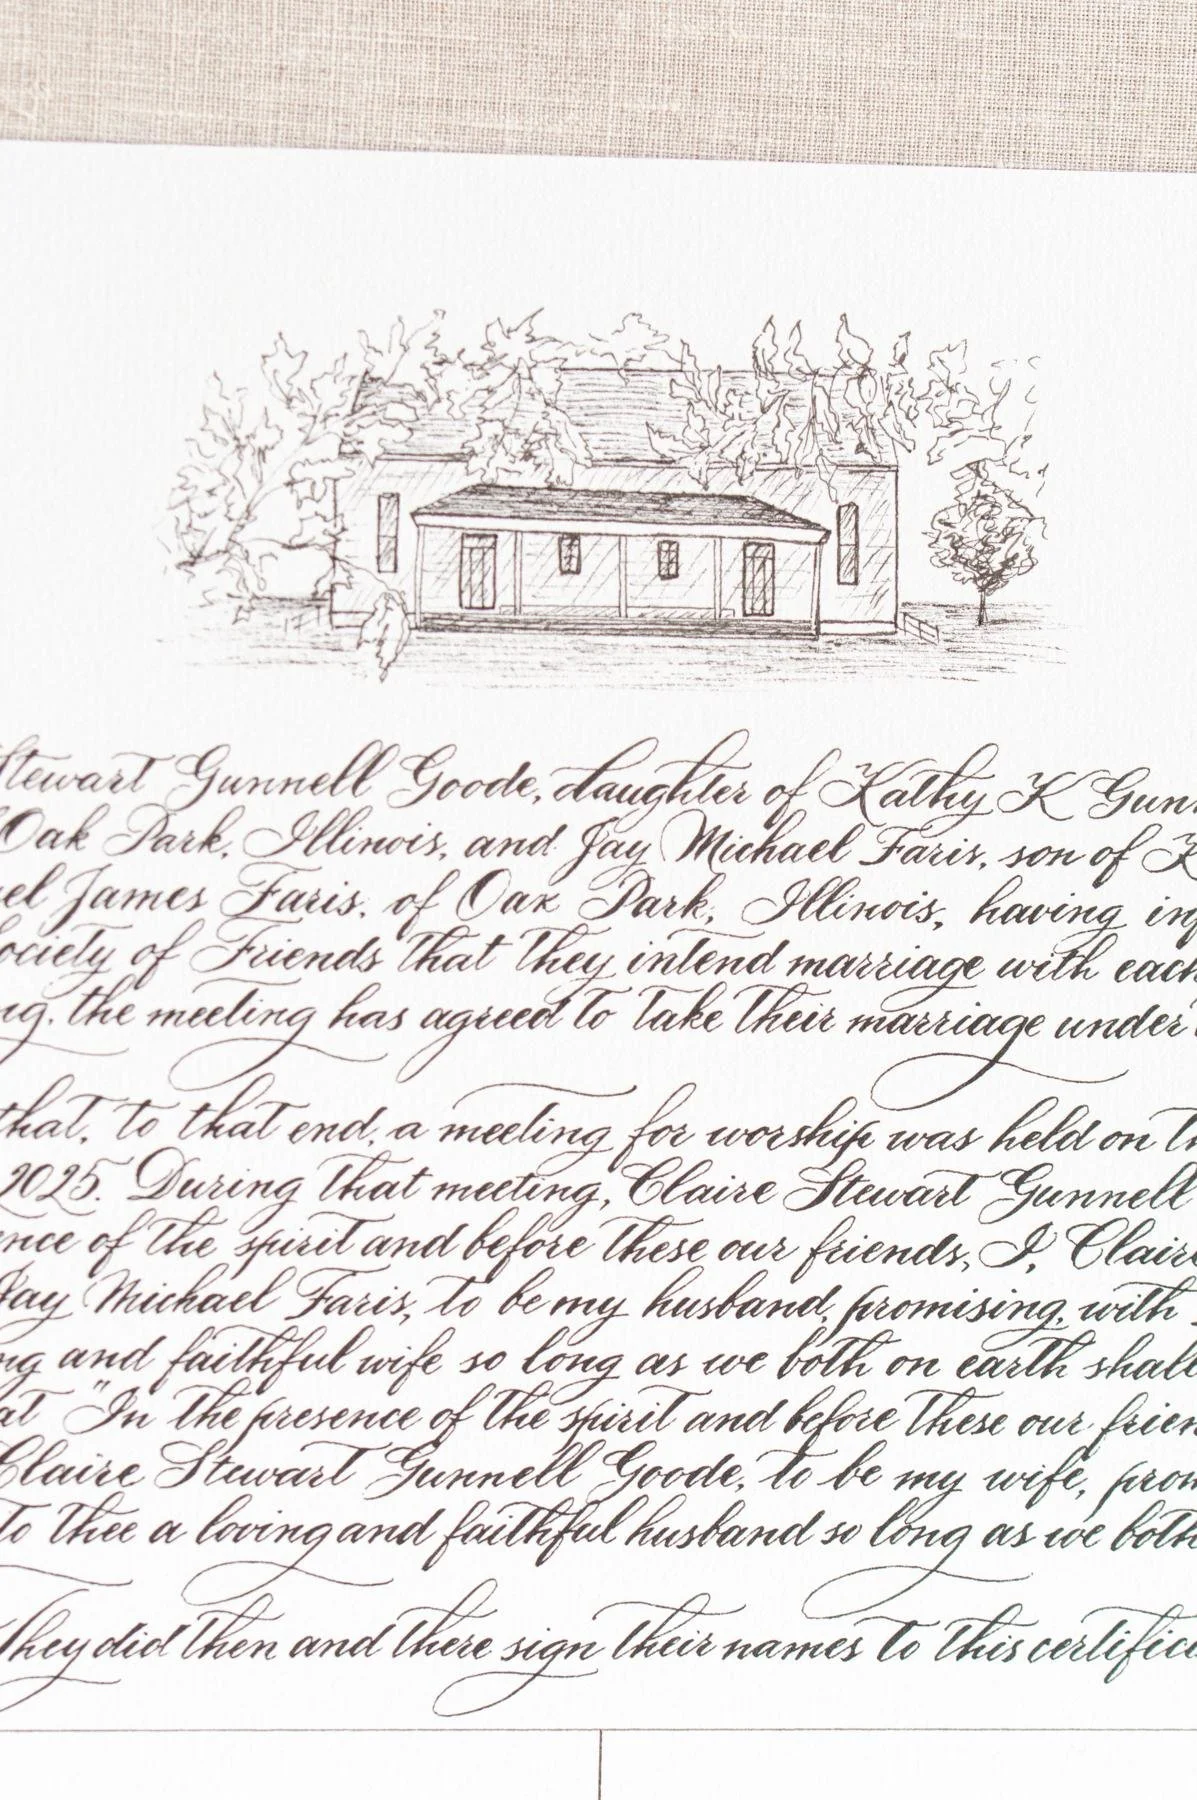 Stewart Gunnell Goode, daughter of Kathy K Gunn
Oak Park, Illinois, and Jay Michael Faris, son of K
el James Faris, of Oak Park, Illinois, having in
ociety of Friends that they intend marriage with each
ng, the meeting has agreed to take their marriage under
that, to that end, a meeting for worship was held on th
2025. During that meeting, Claire Stewart Gunnell
ence of the spirit and before these our friends, I, Claire
Jay Michael Faris, to be my husband, promising, with
ng and faithful wife so long as we both on earth shall
at "In the presence of the spirit and before these our frien
Claire Stewart Gunnell Goode, to be my wife, prom
to thee a loving and faithful husband so long as we both
They did then and there sign their names to this certifica